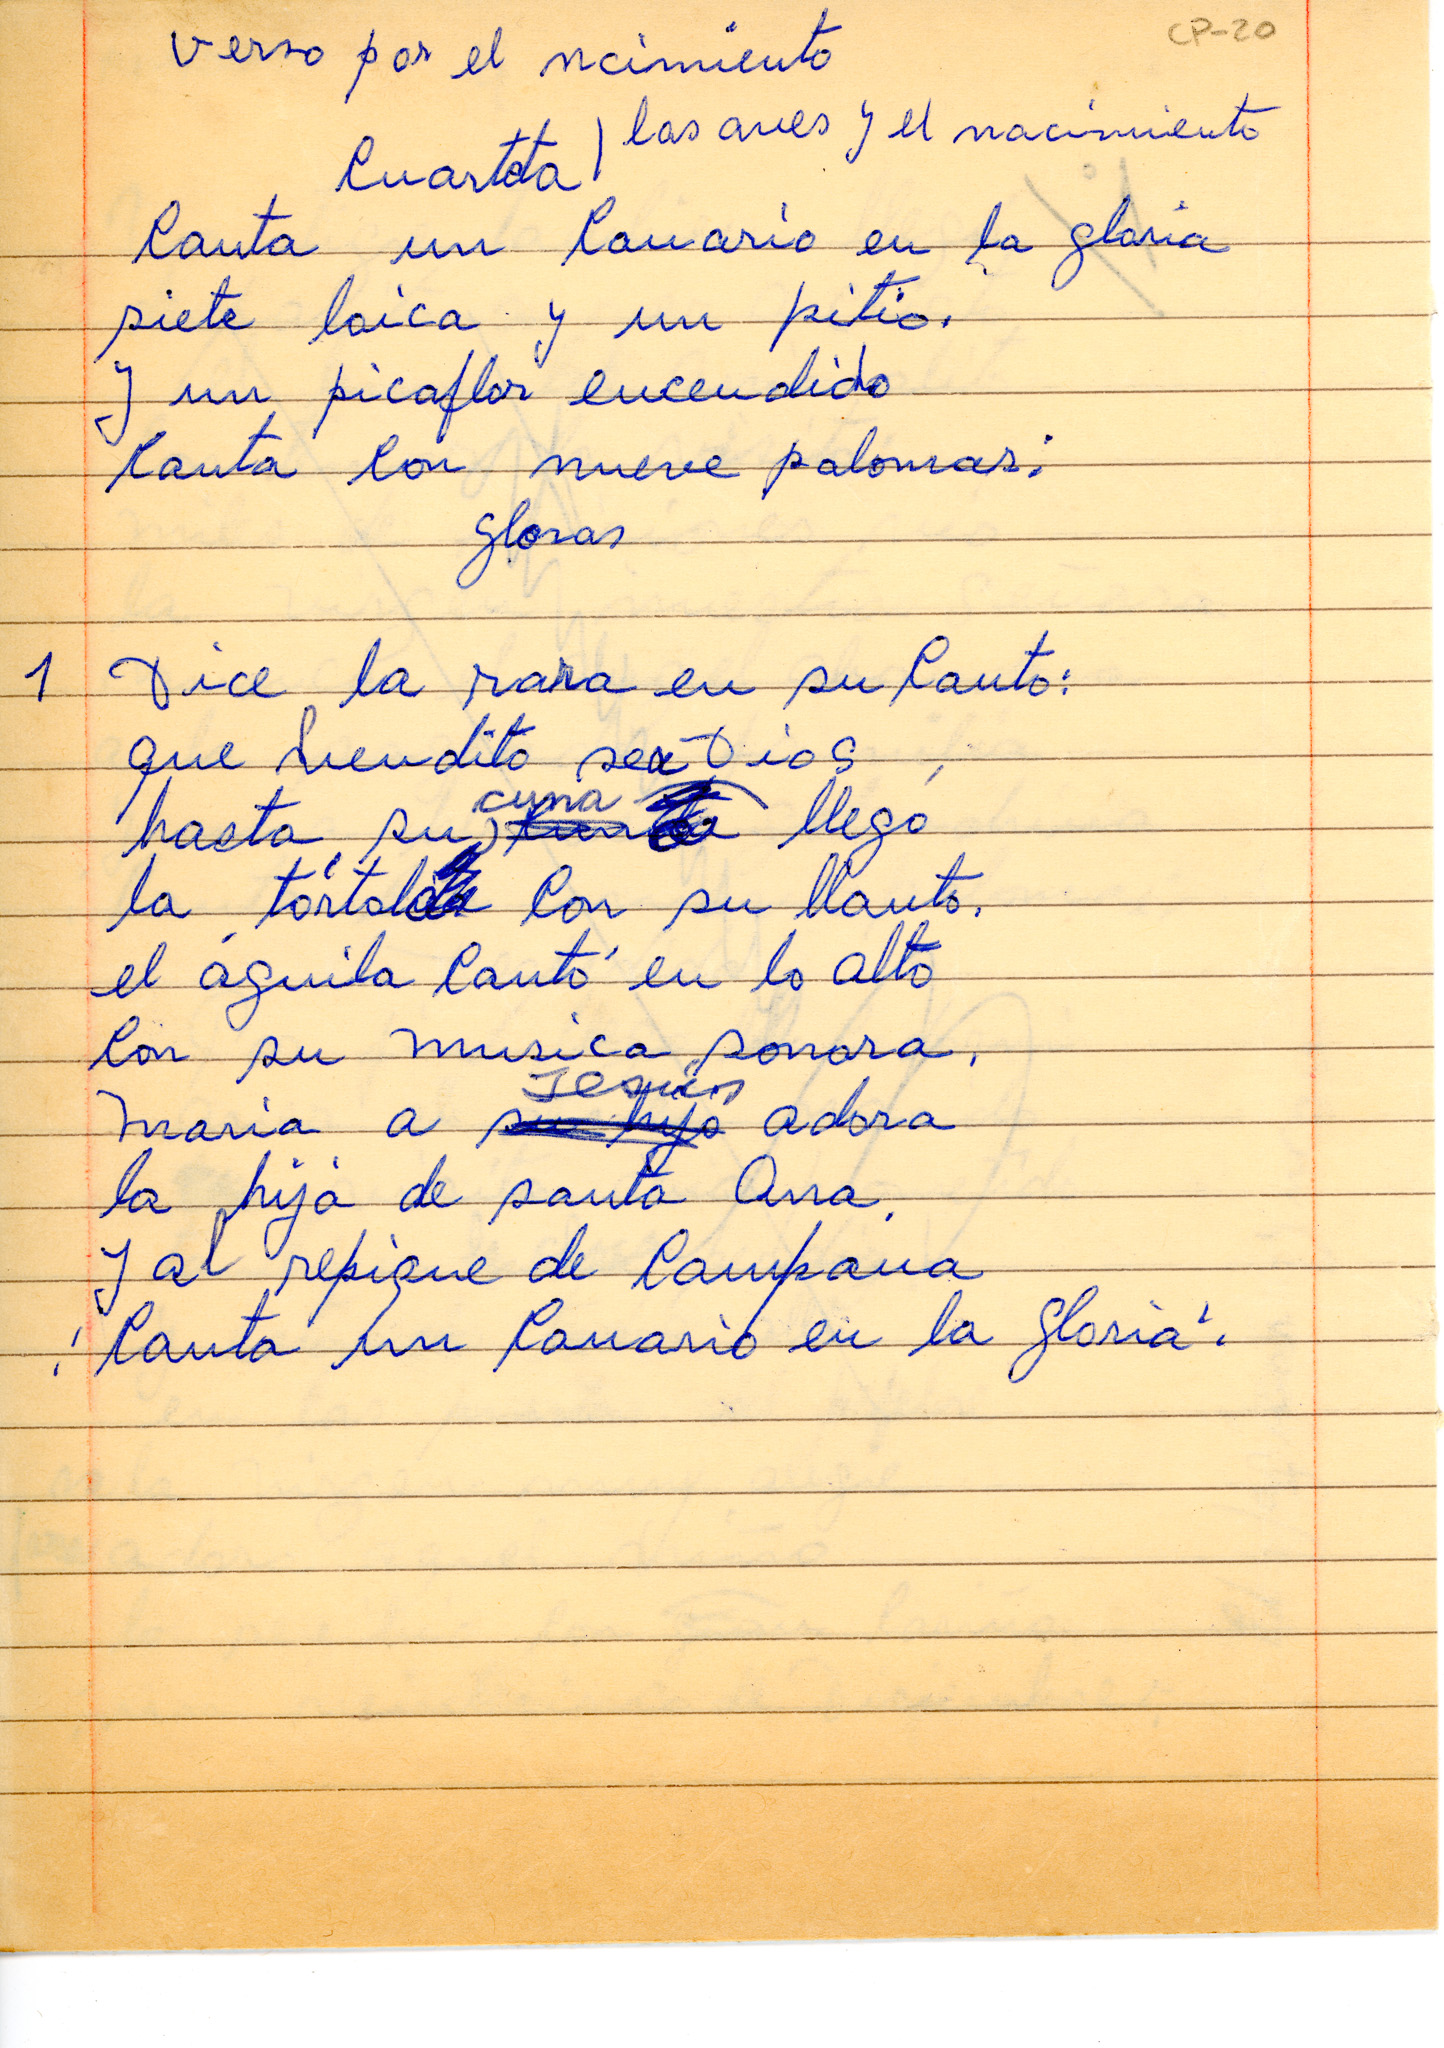 CP-20
verso por el ncimiento
las aves y el nacimiento
Cuarteta
Canta un Canario en la gloria
siete loica y un pitio.
y un picaflor encendido
Canta Con nueve palomas:
gloras
1 Dice la rara en su Canto:
que bendito sea Dios
hasta su cuna llego
la tórtola Con su llanto.
el águila Cantó en lo alto
Con su musica sonora.
maria a Jesús adora
la hija de santa Ana.
y al repique de Campana
¡Canta un Canario en la gloria!.